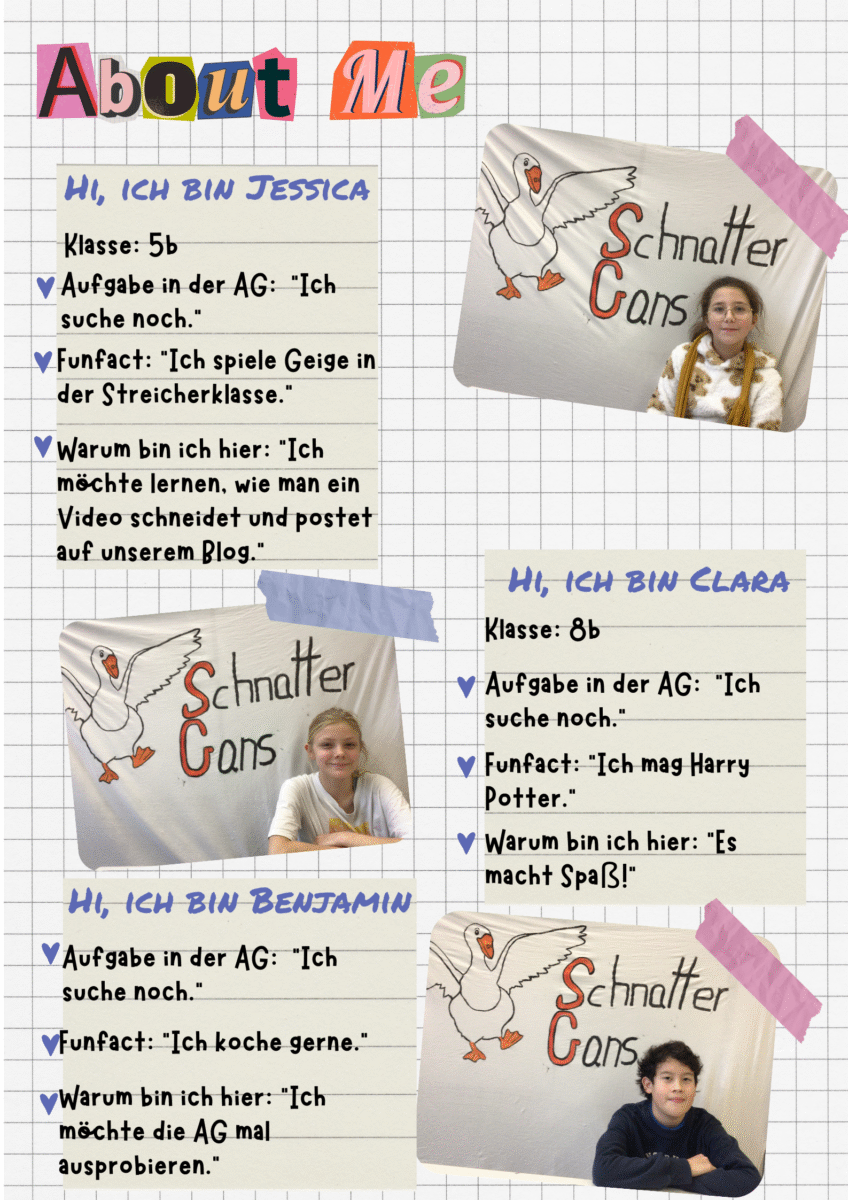 About Me
Hi, ich bin Jessica
Klasse: 5b
Aufgabe in der AG: "Ich
suche noch."
Funfact: "Ich spiele Geige in
der Streicherklasse."
Warum bin ich hier: "Ich
möchte lernen, wie man ein
Video schneidet und postet
auf unserem Blog."
Schnatter
Gans
Schnatter
Gans
Hi, ich bin Clara
Klasse: 8b
Aufgabe in der AG: "Ich
suche noch."
Funfact: "Ich mag Harry
Potter."
Warum bin ich hier: "Es
macht Spaß!"
Hi, ich bin Benjamin
Aufgabe in der AG: "Ich
suche noch."
Funfact: "Ich koche gerne."
Warum bin ich hier: "Ich
möchte die AG mal
ausprobieren."
Schnatter
Gans